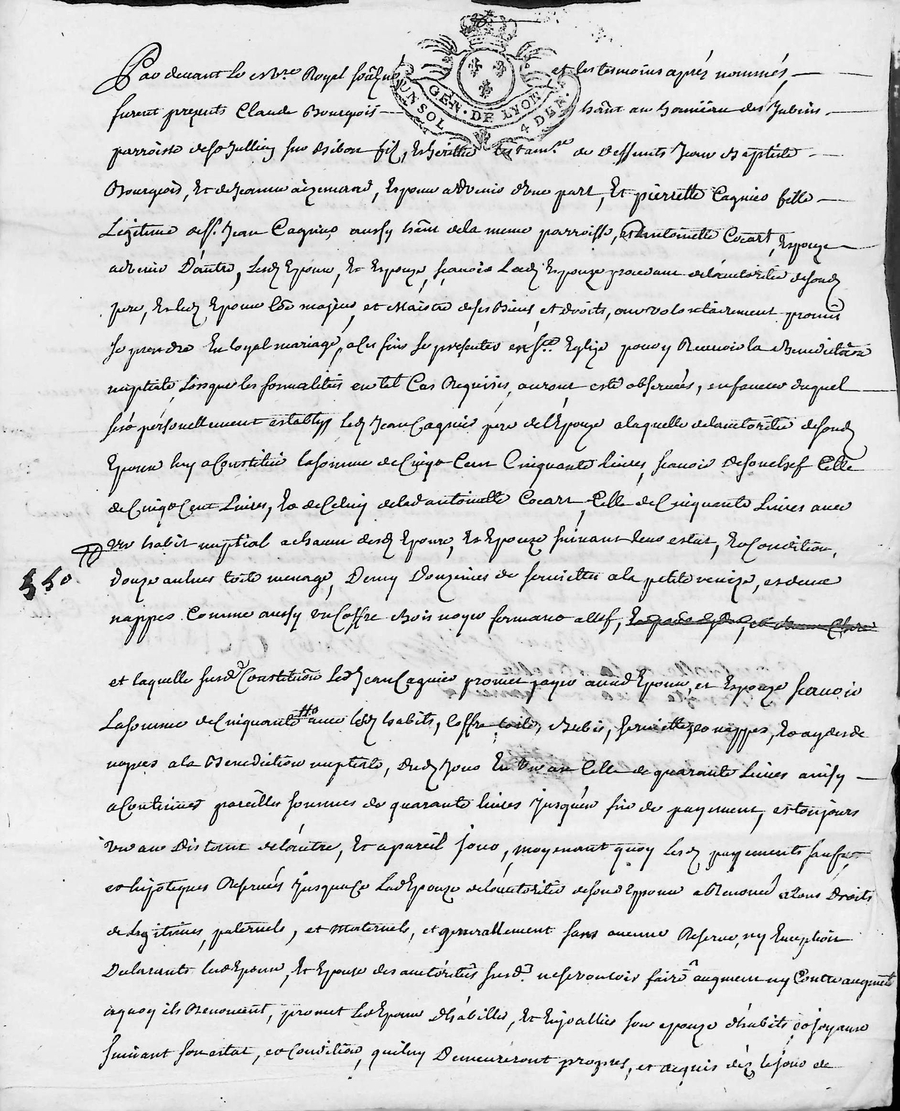 GÉN. DE LYON
UN SOL 4 DEN
Par devant le Royal et les temoins aprés nommés
furent presents Claude Bourgois hânt au des
parroisse de St Jullien sur Bibost fils, de deffunts Jean Baptiste
Bourgois, et de Jeanne Epoux advenir d'une part, et pierrette Cagnieu fille
Légitime de Sr. Jean Cagnieu aussy hânt de la meme parroisse, et Antoinette Cocart, Espouze
advenir D'autre, Lesdz Epoux, et Espouze, sçavoir Ladz Espouze procedant de l'autorité de sondz
pere, et ledz Epoux majeur, et Maistre de ses Biens et droits, ont volontairement promis
se prendre En loyal mariage, a ces fins se presenter en Ste Eglise pour y Recevoir la Benediction
nuptiale, lorsque les formalités en tel Cas Requises, auront esté observées, en faveur duquel
s'est pérsonellement estably ledz Jean Cagnieu pére de l'Epouze a laquelle de l'autorité de sondz
Epoux luy a Constitué la somme de Cinq Cent Cinquante livres, sçavoir de son chef Celle
de Cinq Cent Livres, et de Celuy de lad antoinette Cocart, Celle de Cinquante Livres avec
un habit nuptial a chacun desdz Epoux, et Epouze suivant leur estat, et Condition,
550 douze aulnes toile menage, Demy Douzaine de serviettes a la petite venize, et deux
nappes Comme aussy un Coffre Bois noyer fermant a clef,
et laquelle susdte Constitution Ledz Jean Cagnieu promet payer auxd Epoux, et Espouze sçavoir
La somme de Cinquante avec lesdz habits, Coffre toile, serviettes et nappes,
nopces a la Bénediction nuptiale, dudz jour En un an Celle de quarante Livres ainsy
a Continuer pareilles sommes de quarante livres jusqu'en fin de payement, et toujours
un an Distant de l'autre, Et a pareil jour, moyenant quoy lesdz payements
et hipoteques Reservés jusqu'a ce Lad Epouze de l'autorité de sond Epoux a Renoncé a tous Droits
de Légitimes, paternels, et maternels, et generallement sans aucune Reserve, ny Exception
Declarants lesd Epoux, Et Epouse des autorités susd. ne se vouloir faire augment ny Contre augment
a quoy ils Renoncent, promet Led Epoux d'habiller, Et Enjoallier son epouze d'habits, et joyaux
suivant son estat, et Condition, qui luy Demeureront propres, et acquis dez le jour de